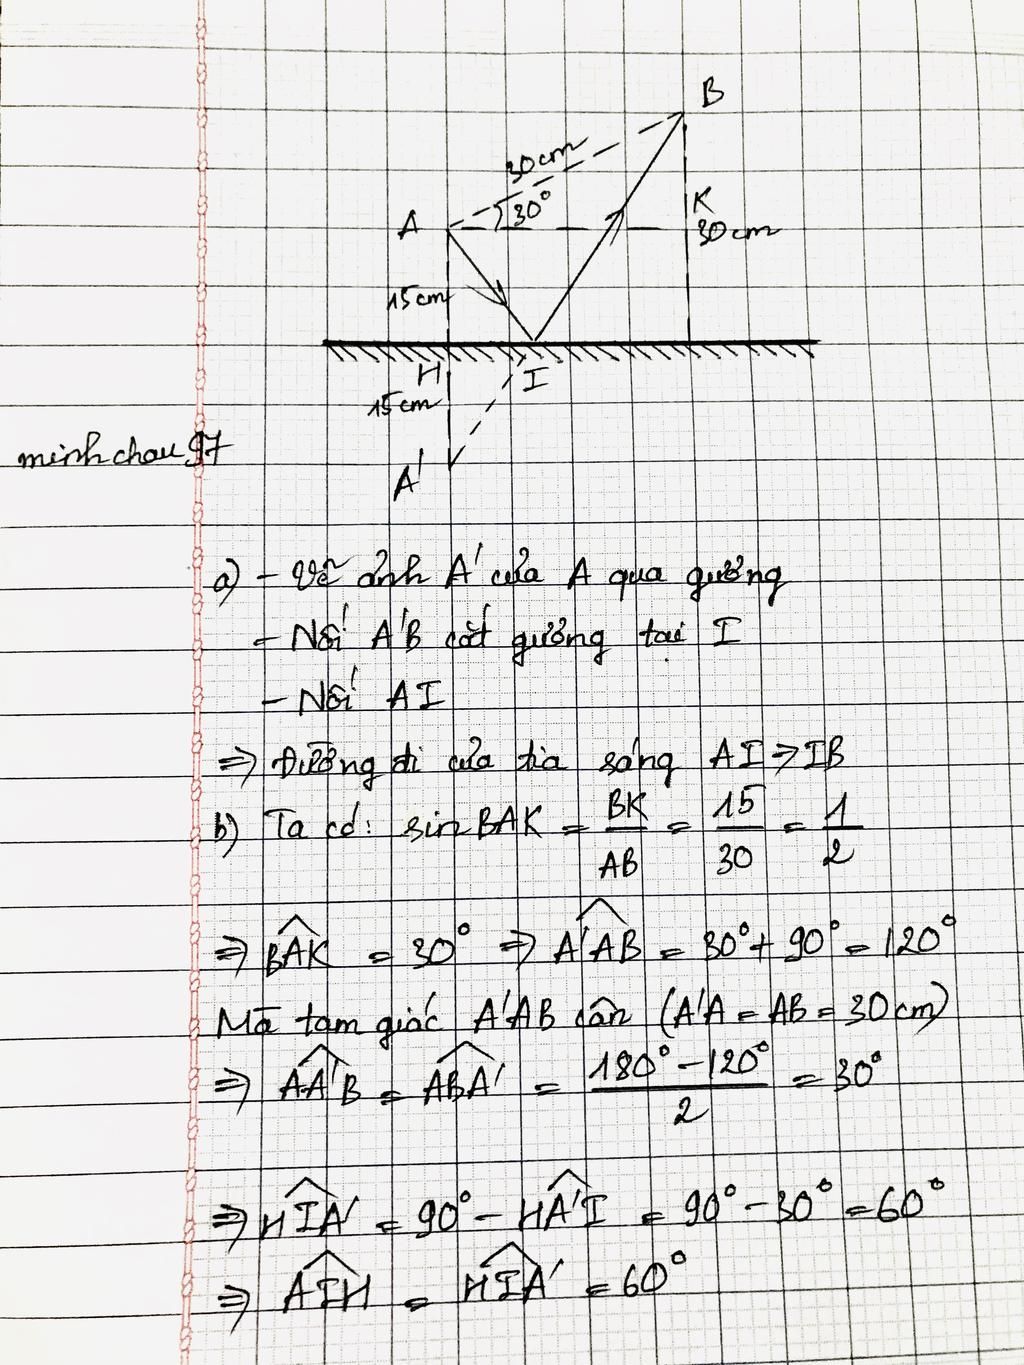 B
30cm
30°
A
K
30cm
15cm
H
I
15cm
minhchau 97
A'
a) - Vẽ ảnh A' của A qua gương
- Nối A'B cắt gương tại I
- Nối AI
=> Đường đi của tia sáng AI => IB
b) Ta có: sin BAK = BK/AB = 15/30 = 1/2
=> BAK = 30° => A'AB = 30° + 90° = 120°
Mà tam giác A'AB cân (A'A = AB = 30cm)
=> AA'B = ABA' = (180° - 120°)/2 = 30°
=> HIA' = 90° - HA'I = 90° - 30° = 60°
=> AIH = HIA' = 60°